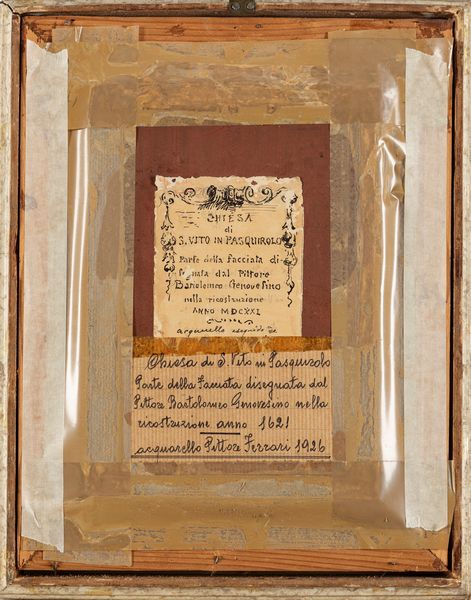 CHIESA
di
S. VITO IN PASQUIROLO
Parte della facciata di-
segnata dal Pittore
Bartolomeo Genovesino
nella ricostruzione
ANNO MDCXXI
acquarello eseguito da
Chiesa di S. Vito in Pasquirolo
Parte della Facciata disegnata dal
Pittore Bartolomeo Genovesino nella
ricostruzione anno 1621
acquarello Pittore Ferrari 1926